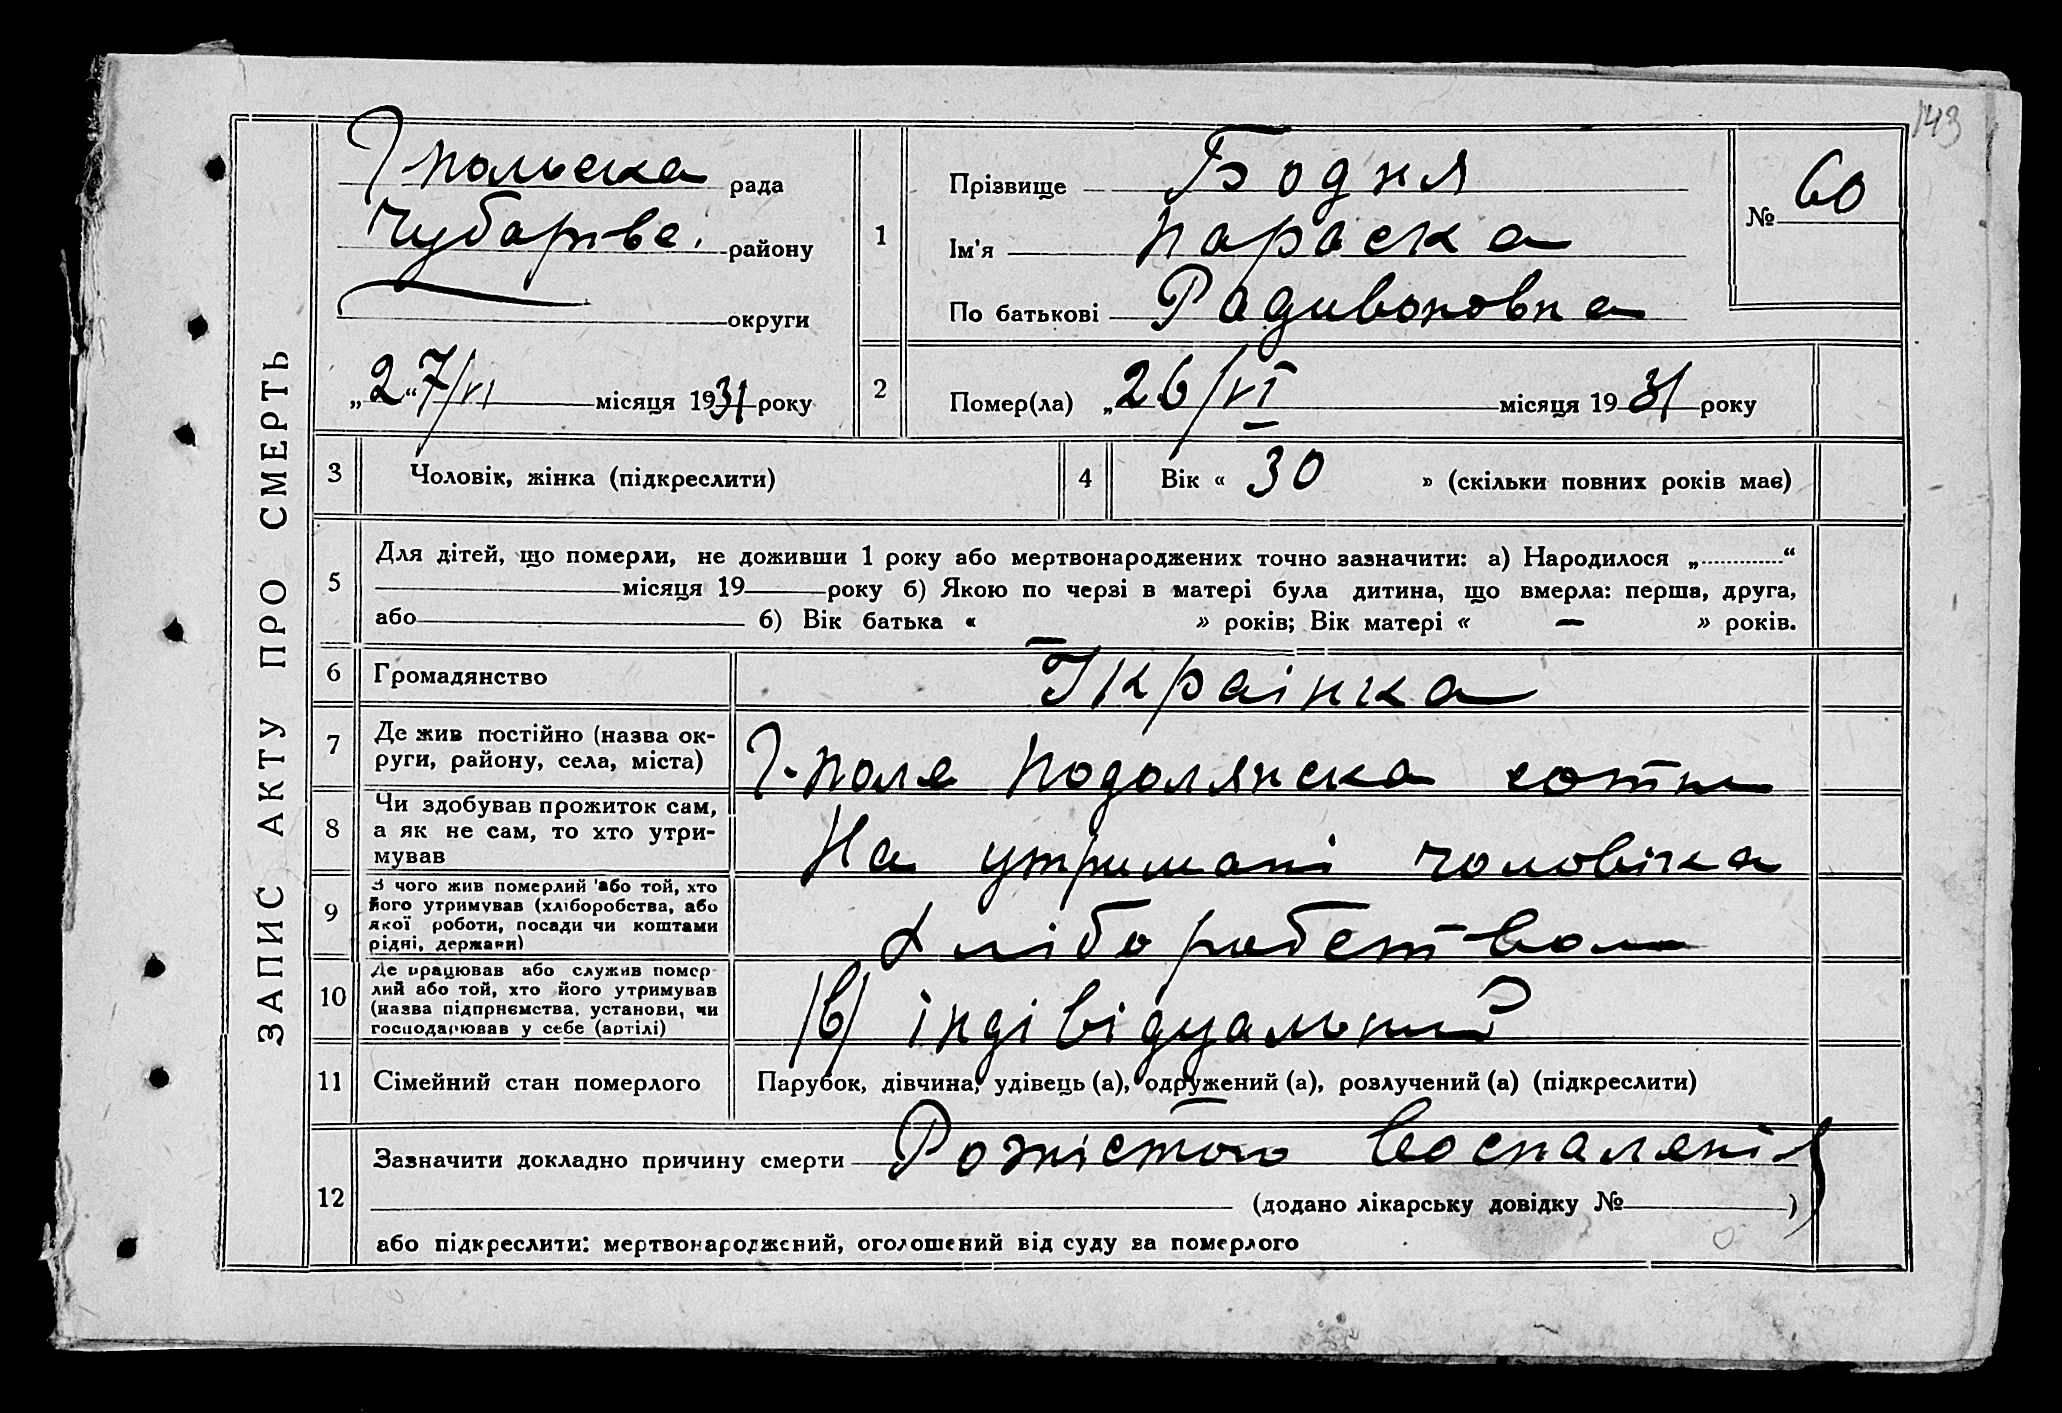 143
ЗАПИС АКТУ ПРО СМЕРТЬ
Г польська рада
Чубарівс. району
округи
„27/VI“ місяця 1931 року
1
Прізвище Бодня
Ім'я Параска
По батькові Радивоновна
№ 60
2
Помер(ла) „26/VI місяця 1931 року
3 Чоловік, жінка (підкреслити)
4 Вік « 30 » (скільки повних років має)
5
Для дітей, що померли, не доживши 1 року або мертвонароджених точно зазначити: а) Народилося „ “
місяця 19 року б) Якою по черзі в матері була дитина, що вмерла: перша, друга,
або б) Вік батька « » років; Вік матері « — » років.
6 Громадянство Украінка
7 Де жив постійно (назва ок-
руги, району, села, міста) Г-поле Подолянска сотня
8 Чи здобував прожиток сам,
а як не сам, то хто утри-
мував На утримані чоловіка
9 З чого жив померлий або той, хто
його утримував (хліборобства, або
якої роботи, посади чи коштами
рідні, держави) Хліборобством
10 Де працював або служив помер-
лий або той, хто його утримував
(назва підприємства, установи, чи
господарював у себе (артілі) /в/ індівідуальний
11 Сімейний стан померлого Парубок, дівчина, удівець (а), одружений (а), розлучений (а) (підкреслити)
12
Зазначити докладно причину смерти Рожістого воспаленія
(додано лікарську довідку № )
або підкреслити: мертвонароджений, оголошений від суду за померлого